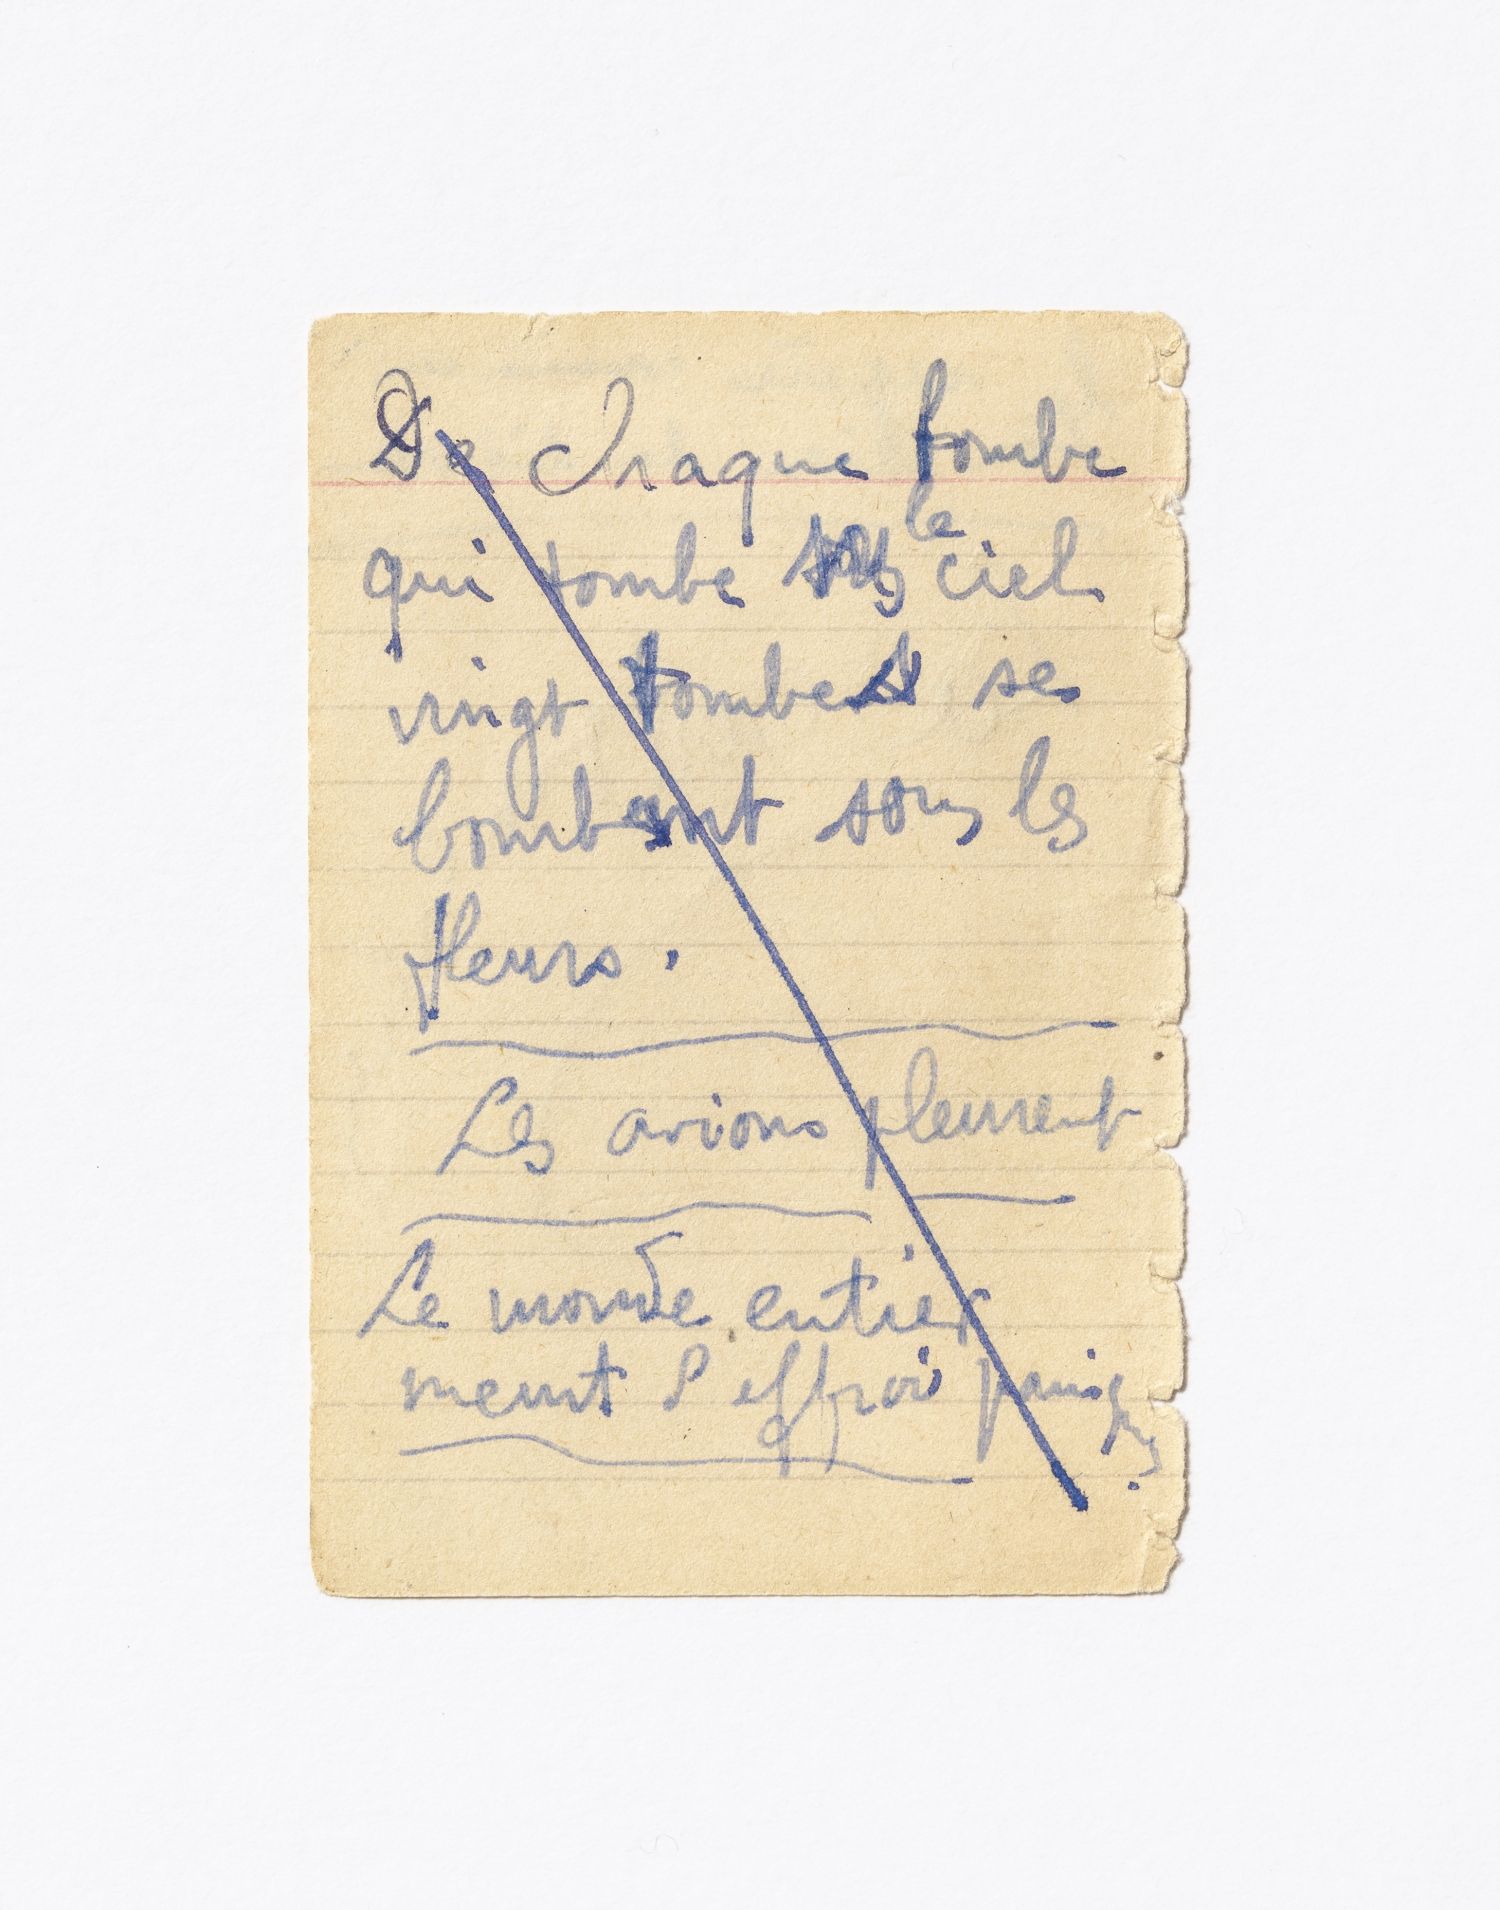 De chaque tombe
qui tombe sous le ciel
vingt tombes se
bombent sous les
fleurs.
Les avions pleurent
Le monde entier
meurt d'effroi panique.